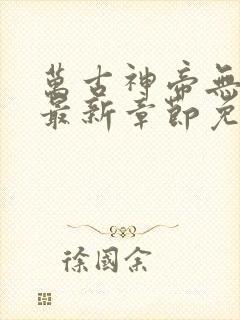 萬古神帝無
最新章節免
徐國余